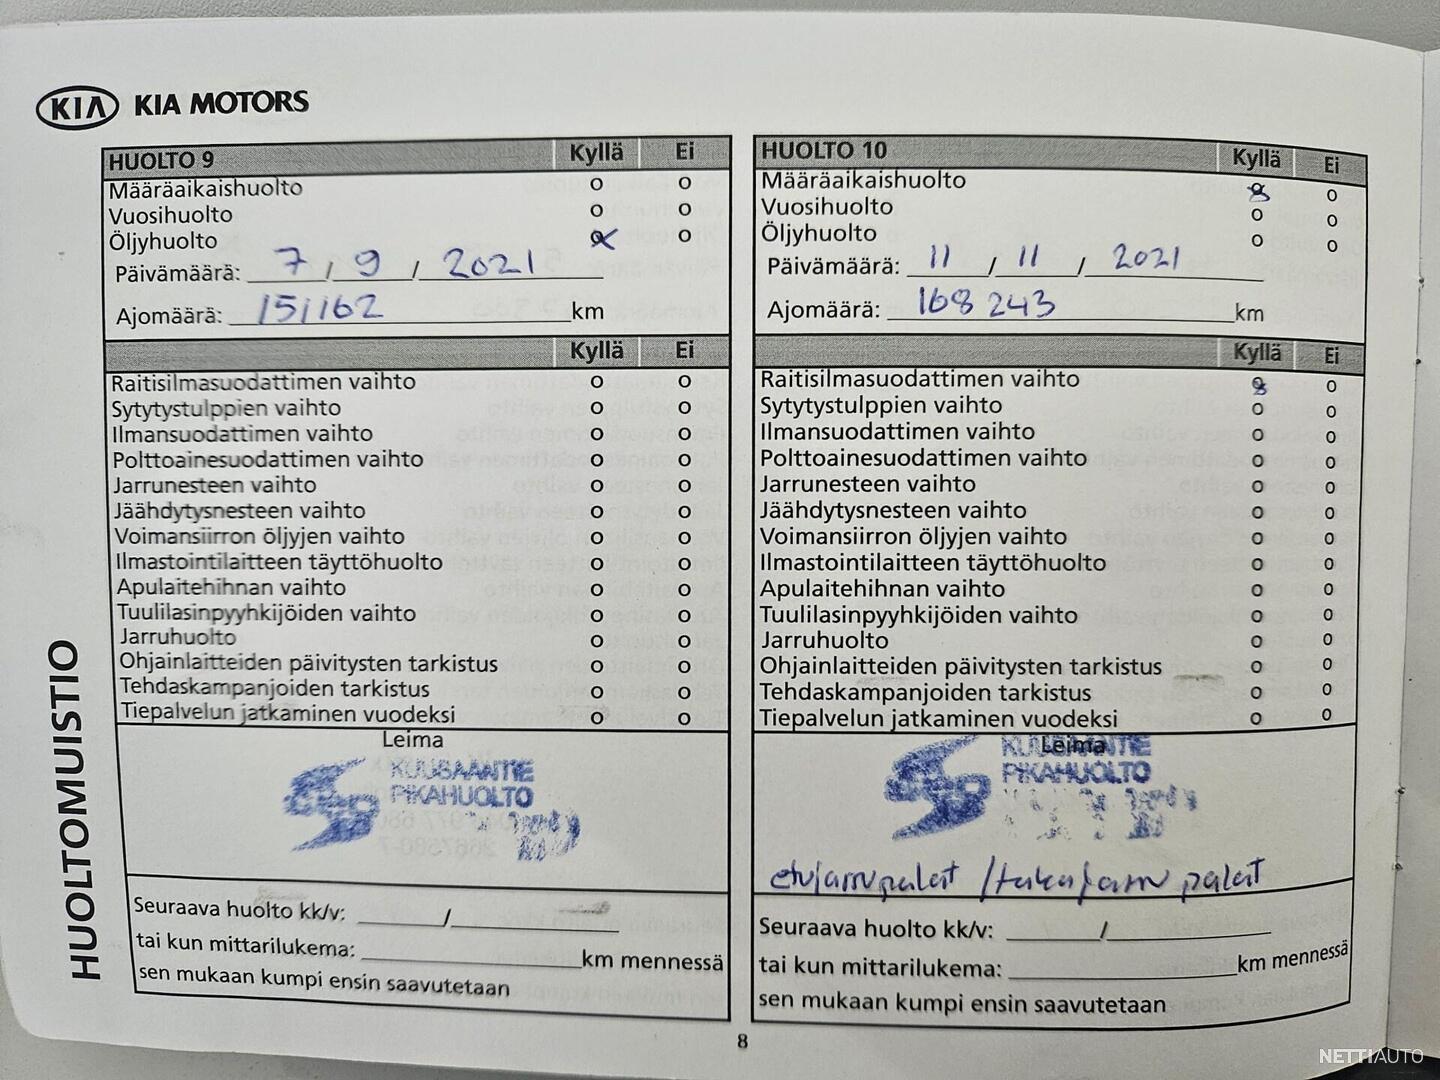 KIA KIA MOTORS
HUOLTO 9 Kyllä Ei
Määräaikaishuolto o o
Vuosihuolto o o
Öljyhuolto o o
Päivämäärä: 7 / 9 / 2021
Ajomäärä: 151162 km
Kyllä Ei
Raitisilmasuodattimen vaihto o o
Sytytystulppien vaihto o o
Ilmansuodattimen vaihto o o
Polttoainesuodattimen vaihto o o
Jarrunesteen vaihto o o
Jäähdytysnesteen vaihto o o
Voimansiirron öljyjen vaihto o o
Ilmastointilaitteen täyttöhuolto o o
Apulaitehihnan vaihto o o
Tuulilasinpyyhkijöiden vaihto o o
Jarruhuolto o o
Ohjainlaitteiden päivitysten tarkistus o o
Tehdaskampanjoiden tarkistus o o
Tiepalvelun jatkaminen vuodeksi o o
Leima
KUUSAANTIE
PIKAHUOLTO
Seuraava huolto kk/v: ______/______
tai kun mittarilukema: ____________km mennessä
sen mukaan kumpi ensin saavutetaan
HUOLTO 10 Kyllä Ei
Määräaikaishuolto o o
Vuosihuolto o o
Öljyhuolto o o
Päivämäärä: 11 / 11 / 2021
Ajomäärä: 168 243 km
Kyllä Ei
Raitisilmasuodattimen vaihto o o
Sytytystulppien vaihto o o
Ilmansuodattimen vaihto o o
Polttoainesuodattimen vaihto o o
Jarrunesteen vaihto o o
Jäähdytysnesteen vaihto o o
Voimansiirron öljyjen vaihto o o
Ilmastointilaitteen täyttöhuolto o o
Apulaitehihnan vaihto o o
Tuulilasinpyyhkijöiden vaihto o o
Jarruhuolto o o
Ohjainlaitteiden päivitysten tarkistus o o
Tehdaskampanjoiden tarkistus o o
Tiepalvelun jatkaminen vuodeksi o o
Leima
KUUSAANTIE
PIKAHUOLTO
etujarrupalat / takajarru palat
Seuraava huolto kk/v: ______/______
tai kun mittarilukema: ____________km mennessä
sen mukaan kumpi ensin saavutetaan
HUOLTOMUISTIO
8
NETTIAUTO